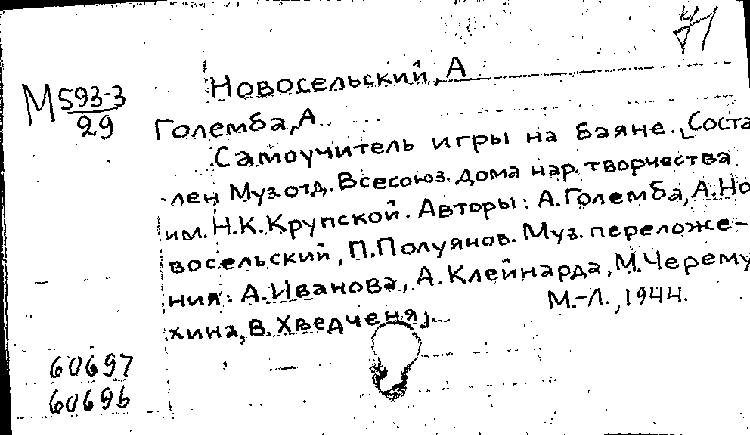 71
Новосельский, А
М 593-3
29
Големба, А.
Самоучитель игры на баяне. [Соста
лен Муз.отд. Всесоюз. дома нар. творчества
им. Н.К. Крупской. Авторы: А. Големба, А. Но
восельский, П. Полуянов. Муз. переложе-
ния: А. Иванова, А. Клейнарда, М. Черему
хина, В. Хведченя].
М.-Л., 1944.
60697
60696